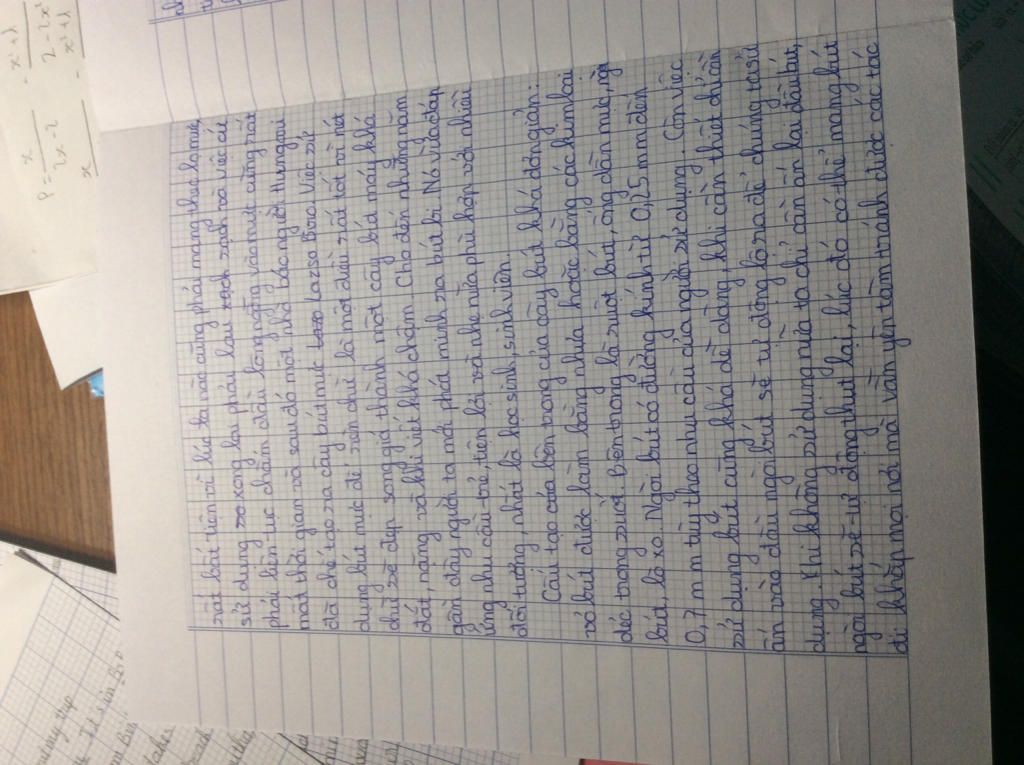 rất bất tiện vì lúc ta nào cũng phải mang theo lọ mực,
sử dụng xo xong lau phải lau rach sạch và việc cứ
phải liên tục chấm đầu lông ngỗng vào mực cũng rất
mất thời gian và sau đó một nhà báo người Hungari
đã chế tạo ra cây bút mực lazo Lazso Biro. Việc sử
dụng bút mực để rèn chữ là một điều rất tốt vì nét
chữ sẽ đẹp song giá thành một cây bút máy khá
đắt, nặng và khi viết khá chậm. Cho đến những năm
gần đây người ta mới phát minh ra bút bi. Nó vừa đáp
ứng nhu cầu-rẻ, tiện lợi và nhẹ nữa phù hợp với nhiều
đối tượng, nhất là học sinh, sinh viên.
Cấu tạo của bên trong của cây bút khá đơn giản:
vỏ bút được làm bằng nhựa hoặc bằng các kim loại
dẻo trong suốt. Bên trong là ruột bút, ống dẫn mực, ngòi
bút, lò xo. Ngòi bút có đường kính từ 0,25 mm đến
0,7 mm tùy theo nhu cầu của người sử dụng. Còn việc
sử dụng bút cũng khá dễ dàng, khi cần thiết chỉ cần
ấn vào đầu ngòi bút sẽ tự động lộ ra để chúng ta sử
dụng. Khi không sử dụng nữa ta chỉ cần ấn lại đầu bút,
ngòi bút sẽ tự động thụt lại, lúc đó có thể mang bút
đi khắp mọi nơi mà vẫn yên tâm tránh được các tác
P = x / 2x - 2 - x² + 1
x - 2 - 2x² / x² + 1